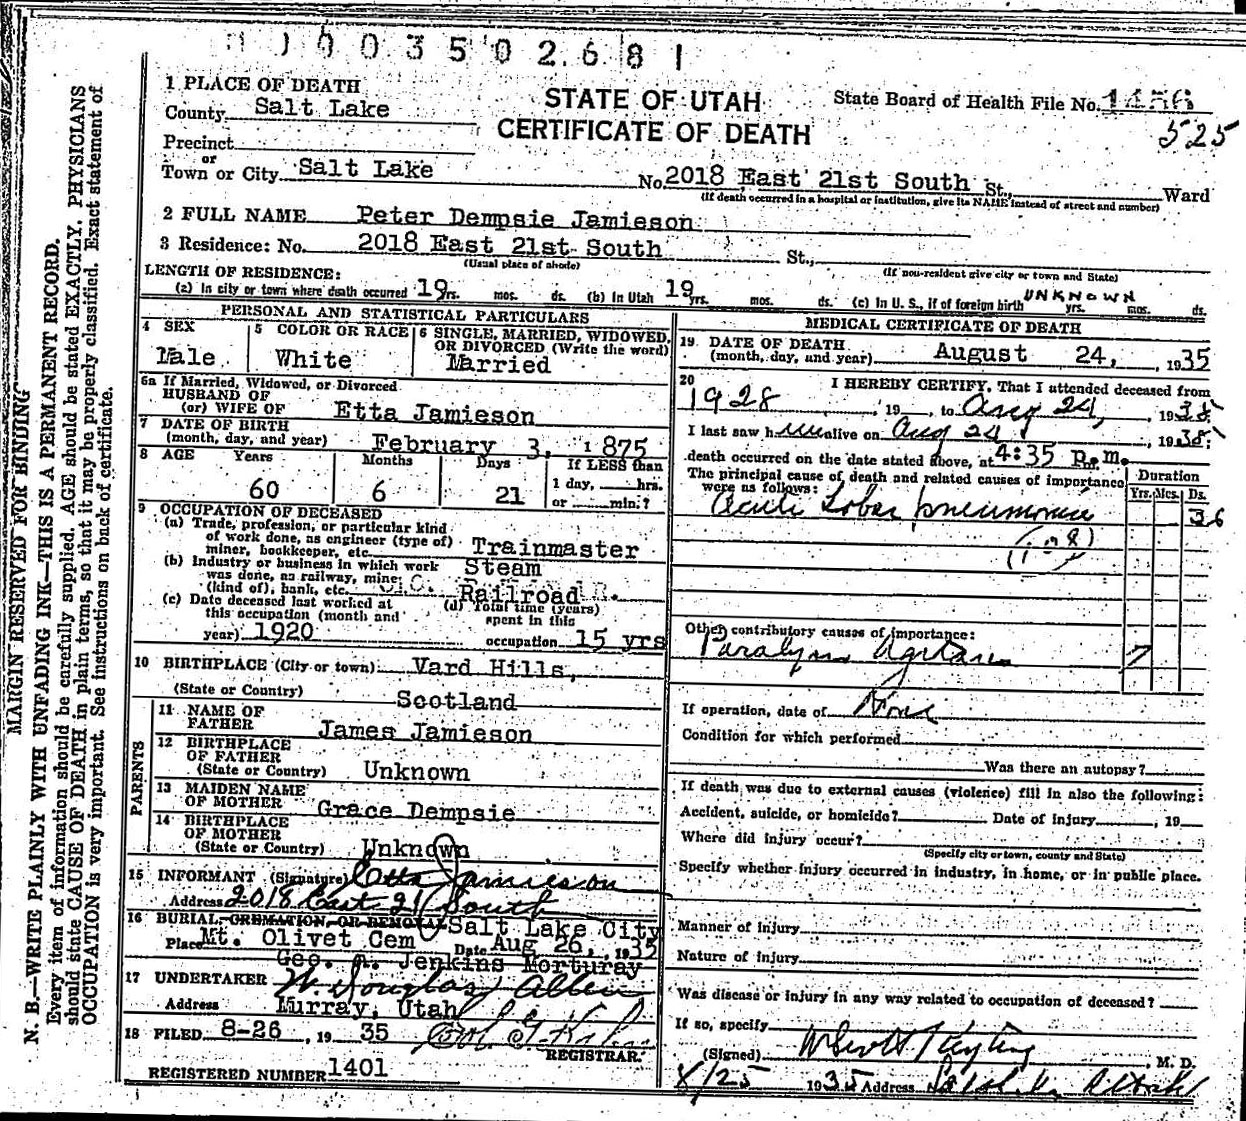 0 0 3 5 0 2 6 8 1
1 PLACE OF DEATH
County Salt Lake
STATE OF UTAH
CERTIFICATE OF DEATH
State Board of Health File No. 1456
525
Precinct
or
Town or City Salt Lake No. 2018 East 21st South St., Ward
(If death occurred in a hospital or institution, give its NAME instead of street and number)
2 FULL NAME Peter Dempsie Jamieson
3 Residence: No. 2018 East 21st South St.,
(Usual place of abode) (If non-resident give city or town and State)
LENGTH OF RESIDENCE:
(a) In city or town where death occurred 19 yrs. mos. ds. (b) In Utah 19 yrs. mos. ds. (c) In U. S., if of foreign birth UNKNOWN yrs. mos. ds.
PERSONAL AND STATISTICAL PARTICULARS
4 SEX Male
5 COLOR OR RACE White
6 SINGLE, MARRIED, WIDOWED, OR DIVORCED (Write the word) Married
6a If Married, Widowed, or Divorced
HUSBAND OF
(or) WIFE OF Etta Jamieson
7 DATE OF BIRTH
(month, day, and year) February 3, 1875
8 AGE Years Months Days If LESS than
60 6 21 1 day, hrs.
or min.?
9 OCCUPATION OF DECEASED
(a) Trade, profession, or particular kind
of work done, as engineer (type of)
miner, bookkeeper, etc. Trainmaster
(b) Industry or business in which work Steam
was done, as railway, mine
(kind of), bank, etc. Railroad
(c) Date deceased last worked at (d) Total time (years)
this occupation (month and spent in this
year) 1920 occupation 15 yrs
10 BIRTHPLACE (City or town) Vard Hills,
(State or Country) Scotland
PARENTS
11 NAME OF
FATHER James Jamieson
12 BIRTHPLACE
OF FATHER
(State or Country) Unknown
13 MAIDEN NAME
OF MOTHER Grace Dempsie
14 BIRTHPLACE
OF MOTHER
(State or Country) Unknown
15 INFORMANT (Signature) Etta Jamieson
Address 2018 East 21 South
16 BURIAL, CREMATION, OR REMOVAL Salt Lake City
Place Mt. Olivet Cem Date Aug 26, 1935
Geo. A. Jenkins Morturay
17 UNDERTAKER W. Douglas Allen
Address Murray, Utah
18 FILED 8-26, 1935
REGISTRAR.
REGISTERED NUMBER 1401
MEDICAL CERTIFICATE OF DEATH
19 DATE OF DEATH
(month, day, and year) August 24, 1935
20 I HEREBY CERTIFY, That I attended deceased from
1928, 19 , to Aug 24, 1935
I last saw him alive on Aug 24, 1935;
death occurred on the date stated above, at 4:35 p.m.
The principal cause of death and related causes of importance
were as follows:
Duration
Yrs. Mos. Ds.
Acute Lobar pneumonia 36
(108)
Other contributory causes of importance:
Paralysis Agitans 7
If operation, date of None
Condition for which performed
Was there an autopsy?
If death was due to external causes (violence) fill in also the following:
Accident, suicide, or homicide? Date of Injury , 19
Where did injury occur?
(Specify city or town, county and State)
Specify whether injury occurred in industry, in home, or in public place.
Manner of injury
Nature of injury
Was disease or injury in any way related to occupation of deceased?
If so, specify
(Signed) , M. D.
8/25 1935 Address
MARGIN RESERVED FOR BINDING
N. B.—WRITE PLAINLY WITH UNFADING INK—THIS IS A PERMANENT RECORD.
Every item of information should be carefully supplied. AGE should be stated EXACTLY. PHYSICIANS
should state CAUSE OF DEATH in plain terms, so that it may be properly classified. Exact statement of
OCCUPATION is very important. See instructions on back of certificate.